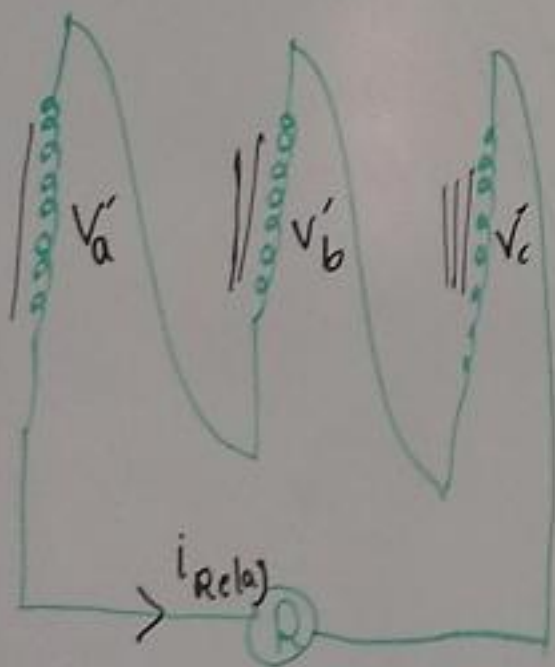 Va'
Vb'
Vc
iRelay
R